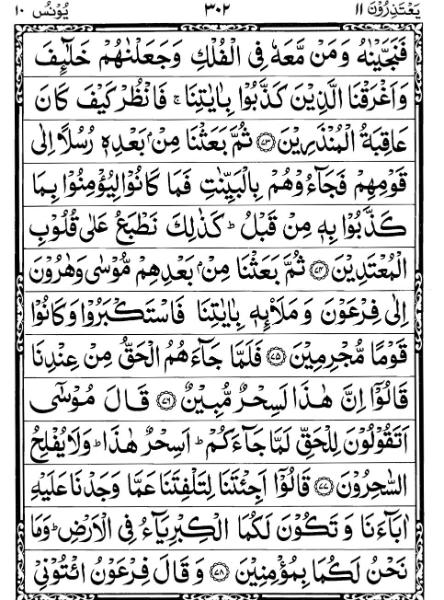 يَعْتَذِرُوْنَ ١١ ٣٠٢ يُوْنُس ١٠
فَنَجَّيْنٰهُ وَمَنْ مَّعَهٗ فِي الْفُلْكِ وَجَعَلْنٰهُمْ خَلٰٓئِفَ
وَاَغْرَقْنَا الَّذِيْنَ كَذَّبُوْا بِاٰيٰتِنَا ۚ فَانْظُرْ كَيْفَ كَانَ
عَاقِبَةُ الْمُنْذَرِيْنَ ﴿٧٣﴾ ثُمَّ بَعَثْنَا مِنْۢ بَعْدِهٖ رُسُلًا اِلٰى
قَوْمِهِمْ فَجَآءُوْهُمْ بِالْبَيِّنٰتِ فَمَا كَانُوْا لِيُؤْمِنُوْا بِمَا
كَذَّبُوْا بِهٖ مِنْ قَبْلُ ؕ كَذٰلِكَ نَطْبَعُ عَلٰى قُلُوْبِ
الْمُعْتَدِيْنَ ﴿٧٤﴾ ثُمَّ بَعَثْنَا مِنْۢ بَعْدِهِمْ مُّوْسٰى وَهٰرُوْنَ
اِلٰى فِرْعَوْنَ وَمَلَا۟ئِهٖ بِاٰيٰتِنَا فَاسْتَكْبَرُوْا وَكَانُوْا
قَوْمًا مُّجْرِمِيْنَ ﴿٧٥﴾ فَلَمَّا جَآءَهُمُ الْحَقُّ مِنْ عِنْدِنَا
قَالُوْۤا اِنَّ هٰذَا لَسِحْرٌ مُّبِيْنٌ ﴿٧٦﴾ قَالَ مُوْسٰۤى
اَتَقُوْلُوْنَ لِلْحَقِّ لَمَّا جَآءَكُمْ ؕ اَسِحْرٌ هٰذَا ؕ وَلَا يُفْلِحُ
السّٰحِرُوْنَ ﴿٧٧﴾ قَالُوْۤا اَجِئْتَنَا لِتَلْفِتَنَا عَمَّا وَجَدْنَا عَلَيْهِ
اٰبَآءَنَا وَتَكُوْنَ لَكُمَا الْكِبْرِيَآءُ فِي الْاَرْضِ ؕ وَمَا
نَحْنُ لَكُمَا بِمُؤْمِنِيْنَ ﴿٧٨﴾ وَقَالَ فِرْعَوْنُ ائْتُوْنِيْ